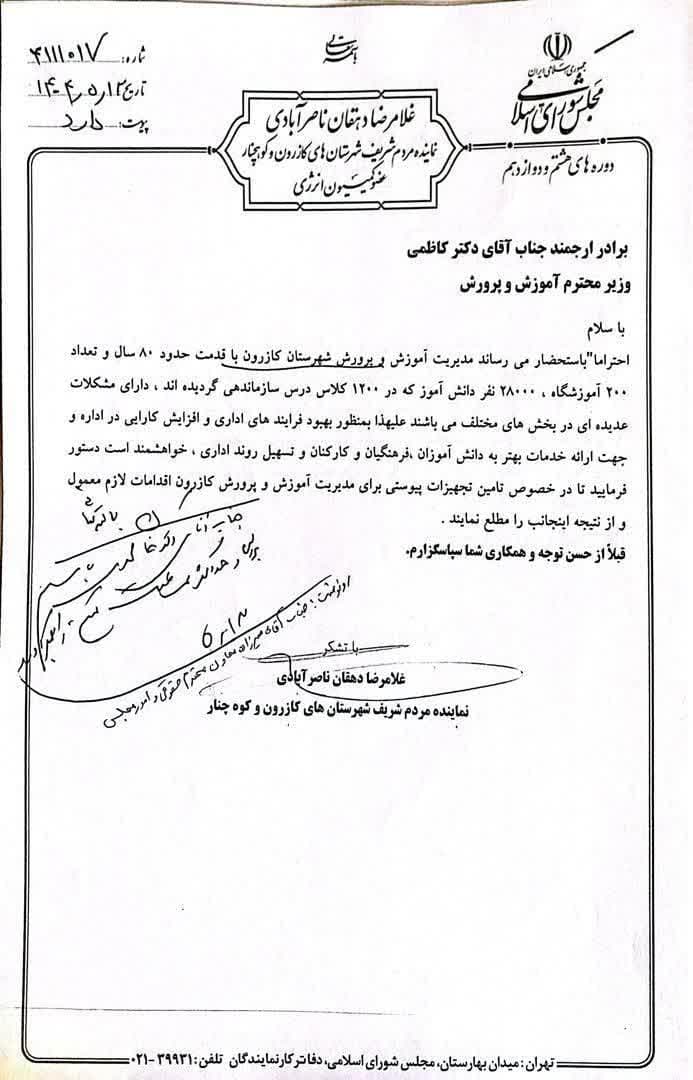 بسمه تعالی
جمهوری اسلامی ایران
مجلس شورای اسلامی
دوره های هشتم و دوازدهم
شماره: ۴۱۱۱۰۱۷
تاریخ: ۱۴۰۴،۵،۱۲
پیوست: دارد
غلامرضا دهقان ناصرآبادی
نماینده مردم شریف شهرستان های کازرون و کوهچنار
عضو کمیسیون انرژی
برادر ارجمند جناب آقای دکتر کاظمی
وزیر محترم آموزش و پرورش
با سلام
احتراما"باستحضار می رساند مدیریت آموزش و پرورش شهرستان کازرون با قدمت حدود ۸۰ سال و تعداد
۲۰۰ آموزشگاه ، ۲۸۰۰۰ نفر دانش آموز که در ۱۲۰۰ کلاس درس سازماندهی گردیده اند ، دارای مشکلات
عدیده ای در بخش های مختلف می باشند علیهذا بمنظور بهبود فرایند های اداری و افزایش کارایی در اداره و
جهت ارائه خدمات بهتر به دانش آموزان ،فرهنگیان و کارکنان و تسهیل روند اداری ، خواهشمند است دستور
فرمایید تا در خصوص تامین تجهیزات پیوستی برای مدیریت آموزش و پرورش کازرون اقدامات لازم معمول
و از نتیجه اینجانب را مطلع نمایند .
قبلاً از حسن توجه و همکاری شما سپاسگزارم.
جناب آقای دکتر
رونوشت: جناب آقای میرزاده معاون محترم حقوقی و امور مجلس
با تشکر
غلامرضا دهقان ناصرآبادی
نماینده مردم شریف شهرستان های کازرون و کوه چنار
تهران: میدان بهارستان، مجلس شورای اسلامی، دفاتر کار نمایندگان تلفن: ۳۹۹۳۱-۰۲۱